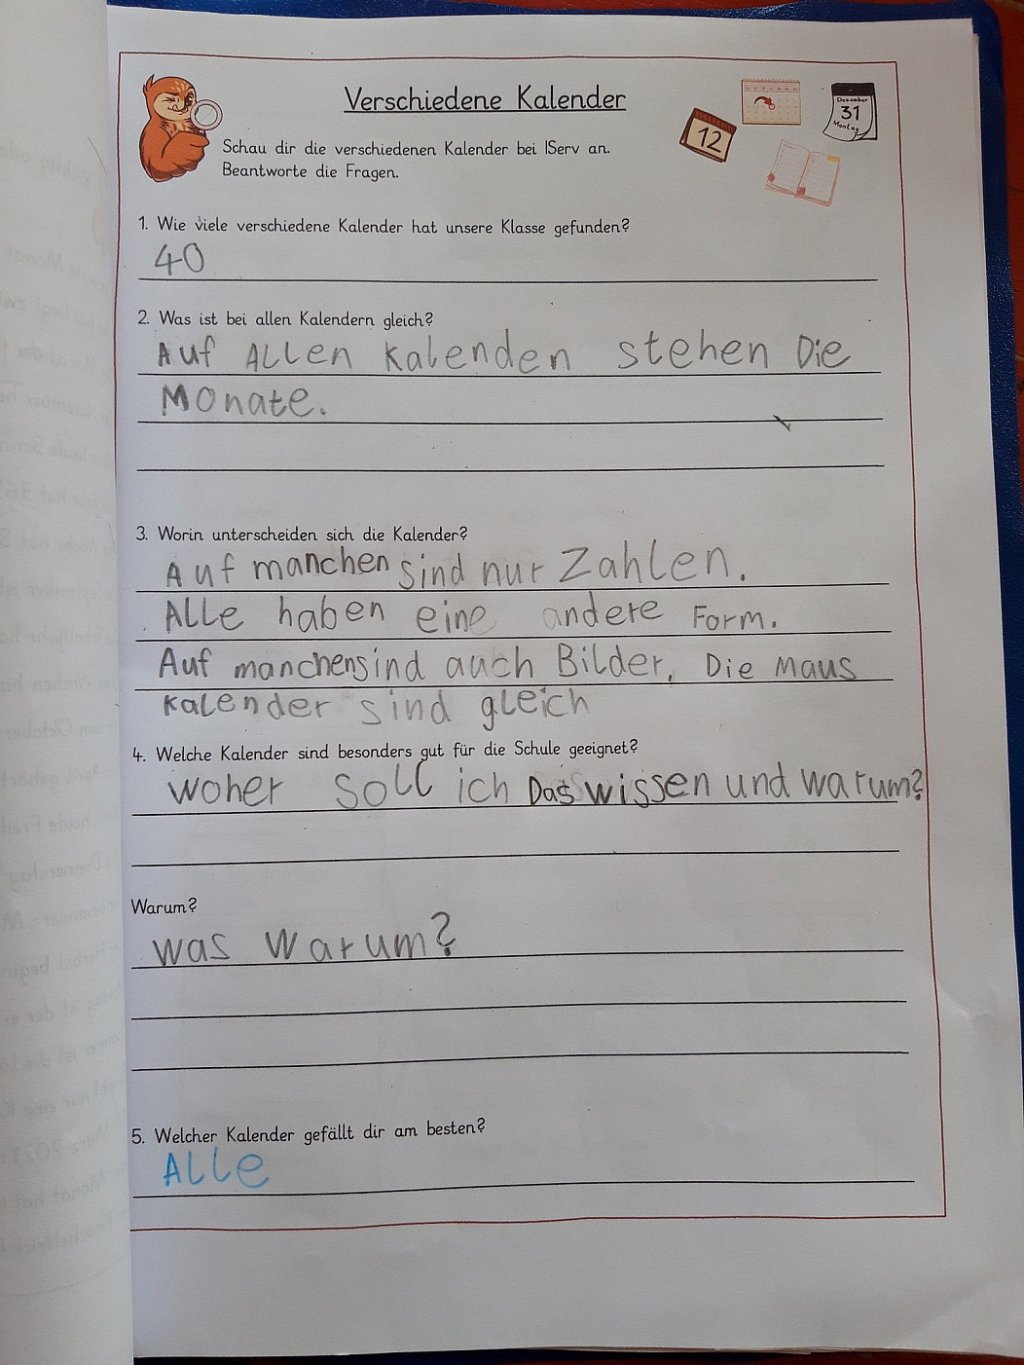 Verschiedene Kalender
12
Dezember
31
Montag
Schau dir die verschiedenen Kalender bei IServ an.
Beantworte die Fragen.
1. Wie viele verschiedene Kalender hat unsere Klasse gefunden?
40
2. Was ist bei allen Kalendern gleich?
Auf ALLen Kalenden stehen Die
Monate.
3. Worin unterscheiden sich die Kalender?
Auf manchen sind nur Zahlen.
Alle haben eine andere Form.
Auf manchen sind auch Bilder. Die Maus
Kalender sind gleich
4. Welche Kalender sind besonders gut für die Schule geeignet?
Woher soll ich Das wissen und warum?
Warum?
was warum?
5. Welcher Kalender gefällt dir am besten?
ALLe